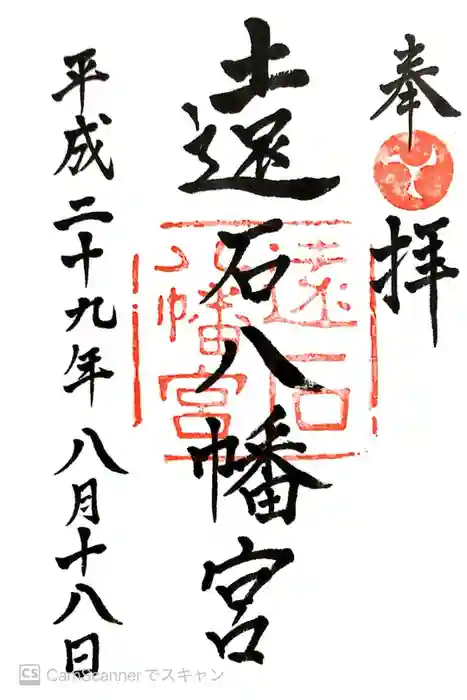 奉拝
遠石八幡宮
遠石
八幡宮
平成二十九年八月十八日
CS CamScannerでスキャン